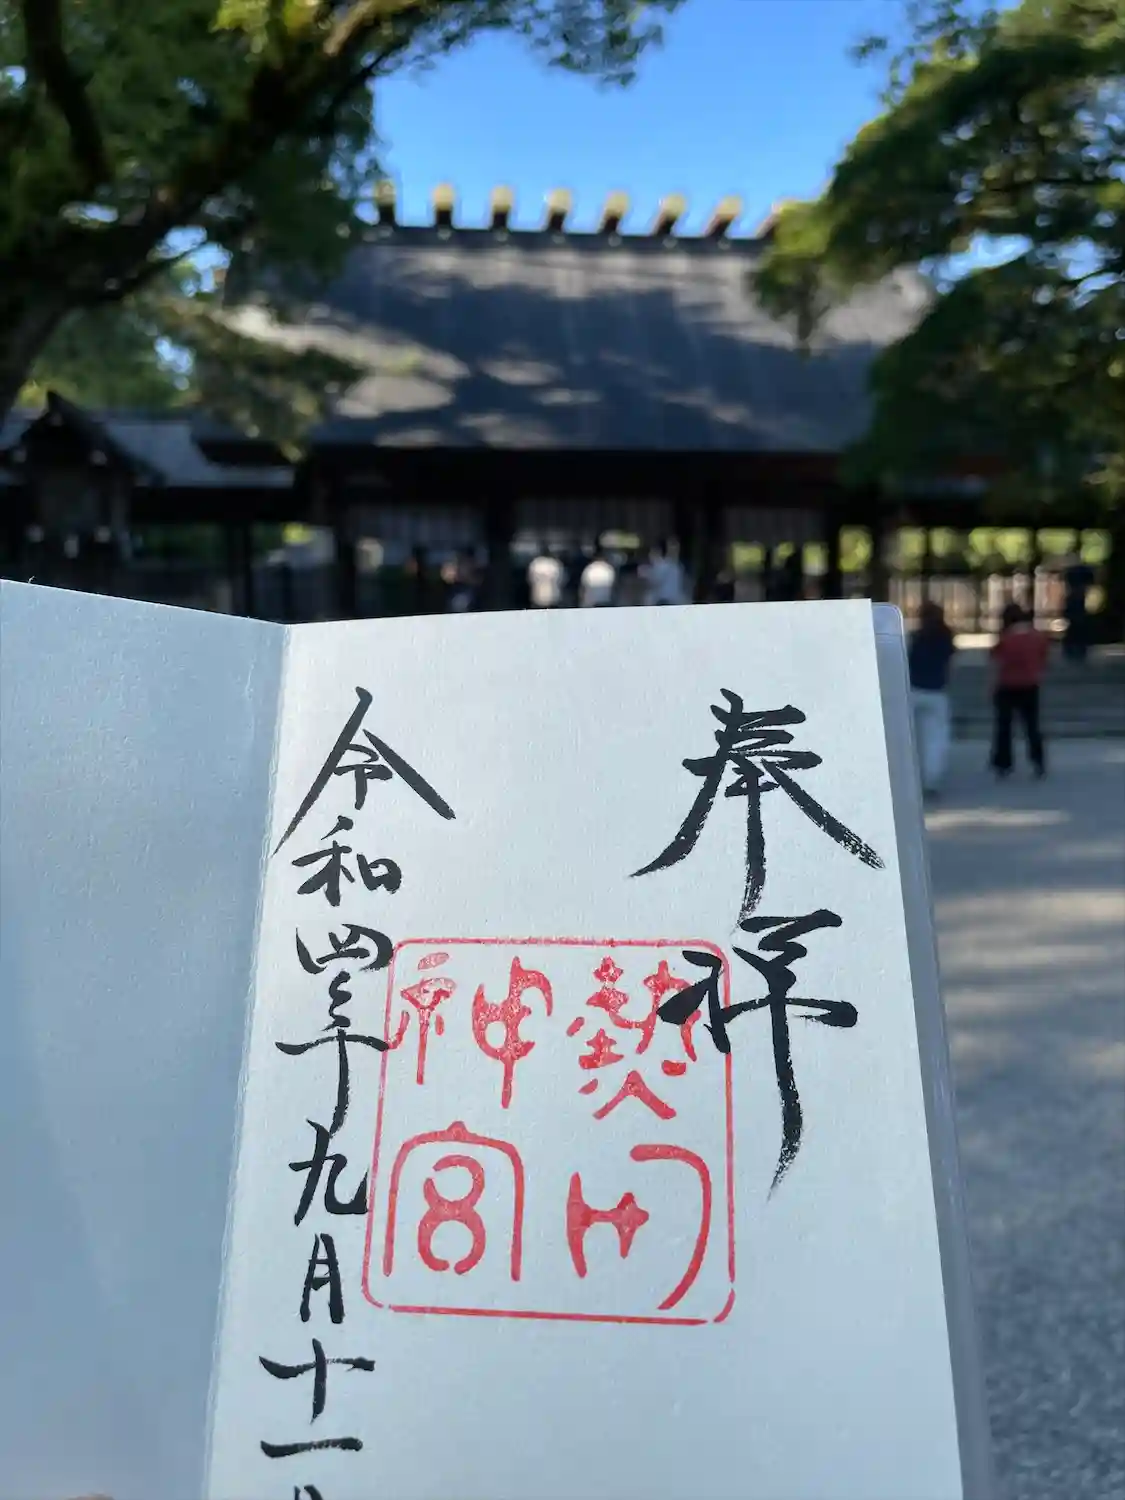 奉拝
熱田
神宮
令和四年九月十一